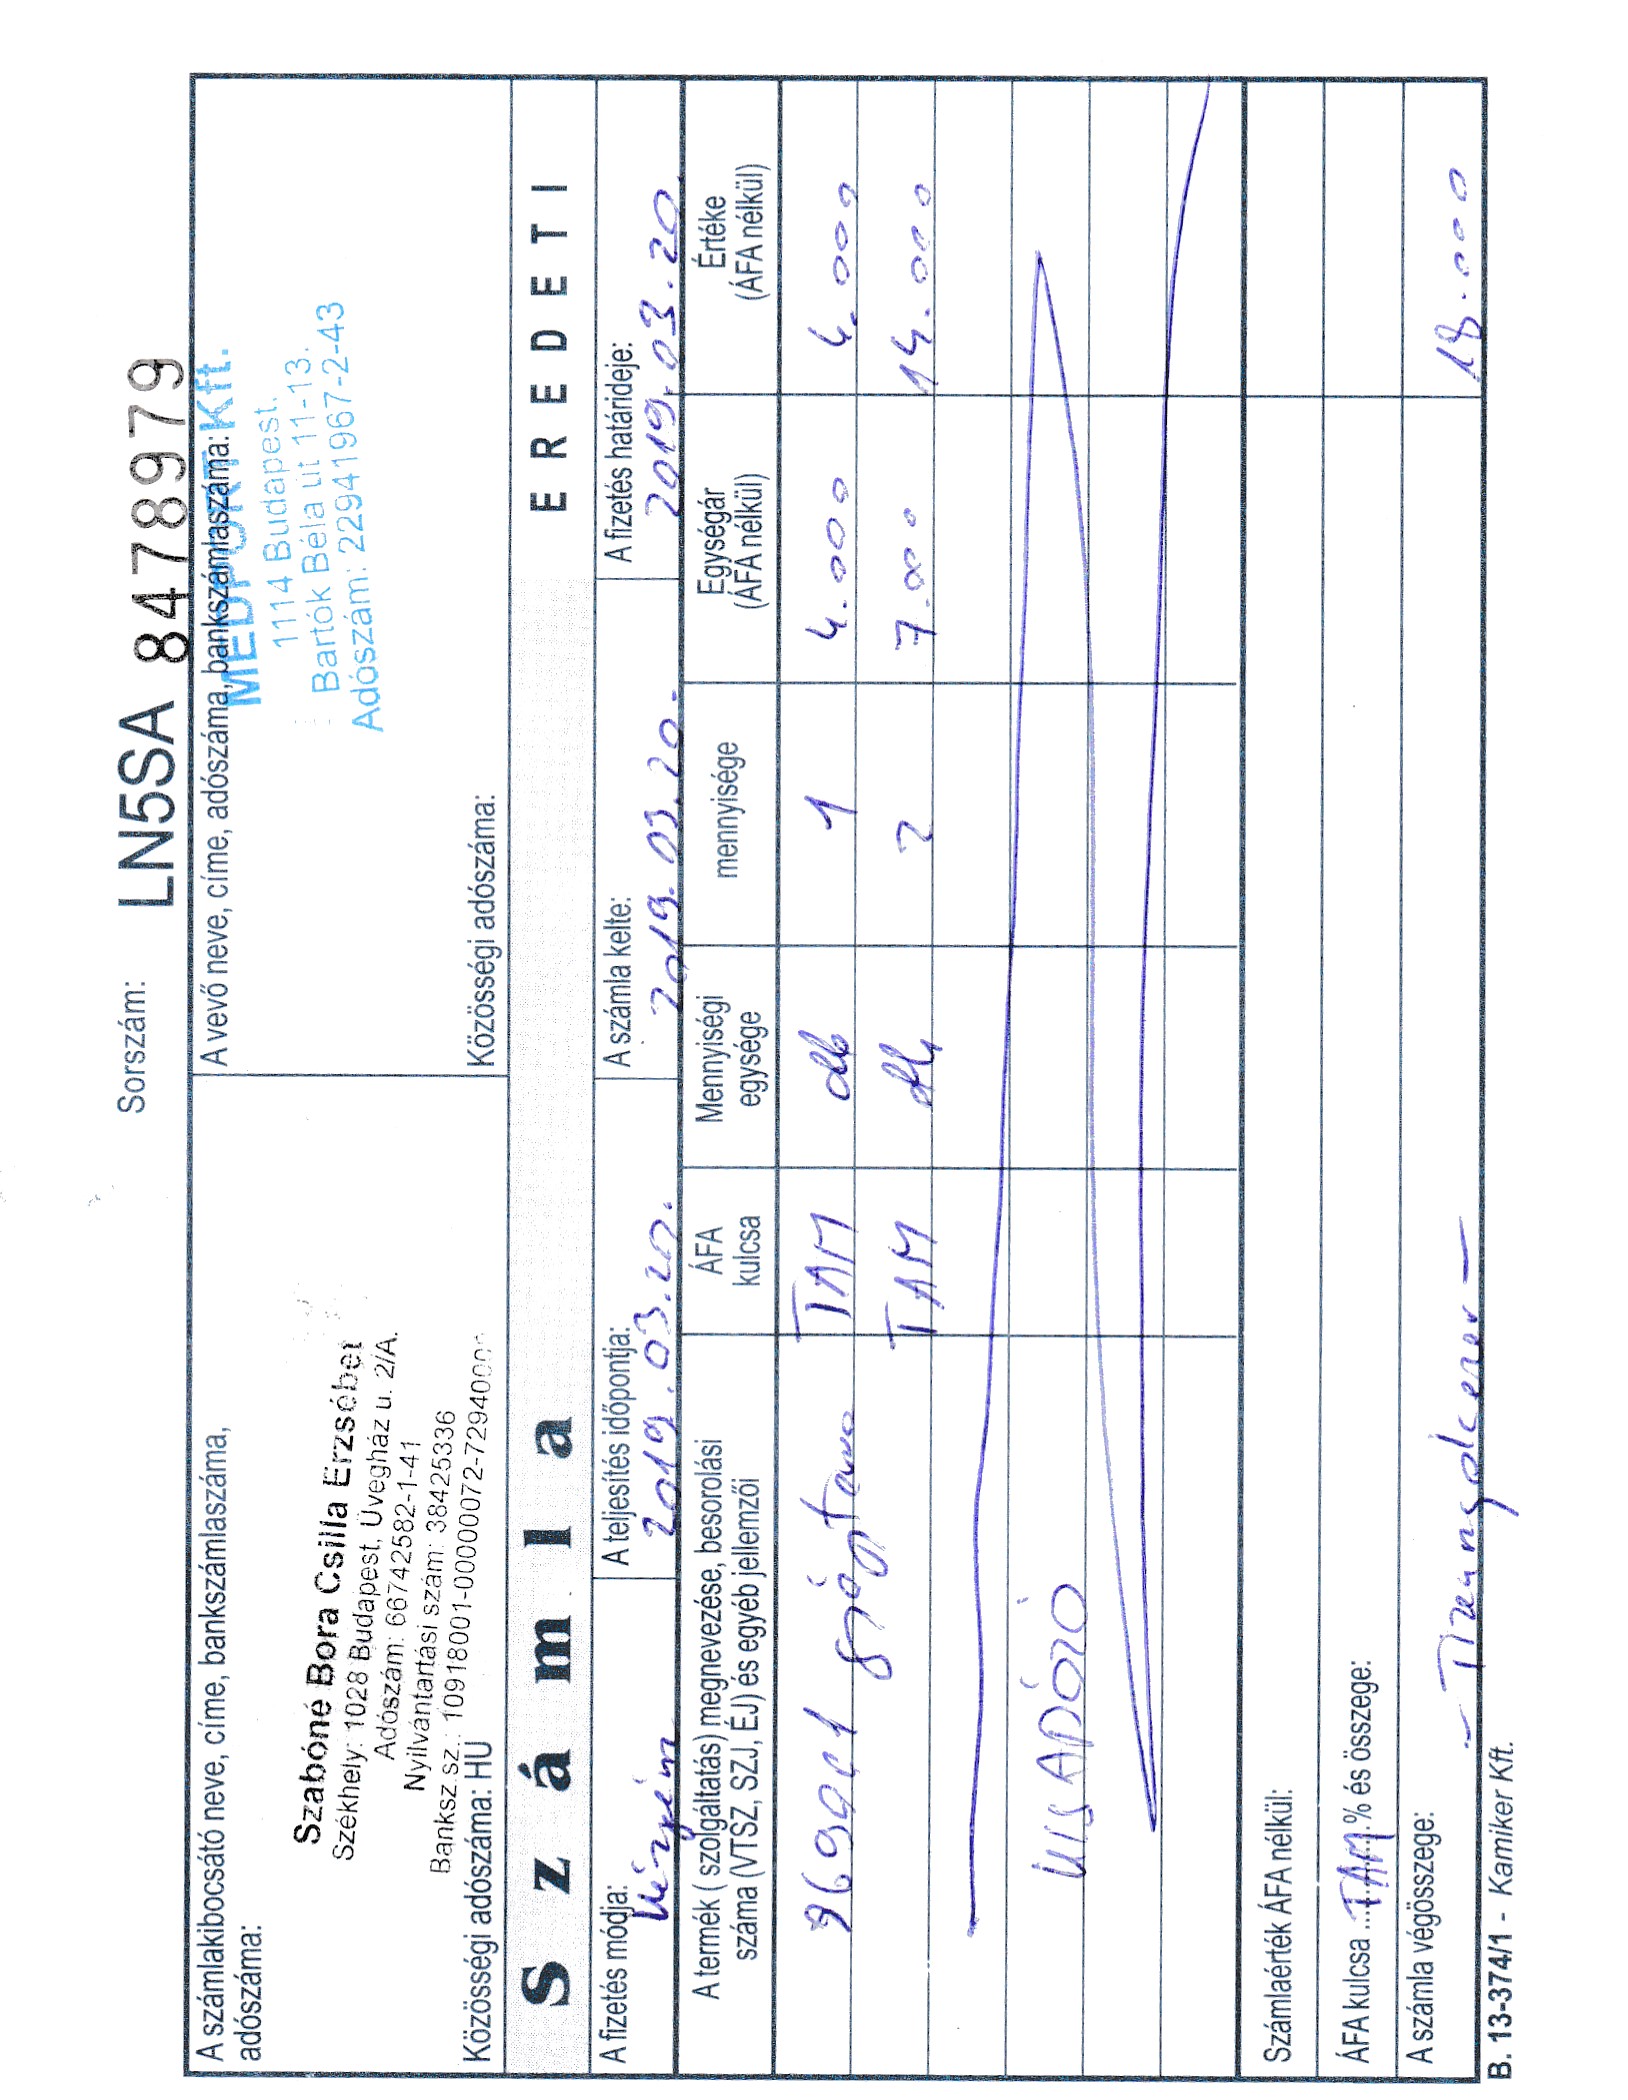 Sorszám: LN5SA 8478979
A számlakibocsátó neve, címe, bankszámlaszáma,
adószáma:
Szabóné Bora Csilla Erzsébet
Székhely: 1028 Budapest, Üvegház u. 2/A.
Adószám: 66742582-1-41
Nyilvántartási szám: 38425336
Banksz.sz.: 10918001-00000072-7294000
Közösségi adószáma: HU
A vevő neve, címe, adószáma, bankszámlaszáma:
MEDPORT Kft.
1114 Budapest.
Bartók Béla út 11-13.
Adószám: 22941967-2-43
Közösségi adószáma:
Számla EREDETI
A fizetés módja: A teljesítés időpontja: A számla kelte: A fizetés határideje:
Készpénz 2019.03.20. 2019.03.20. 2019.03.20.
A termék ( szolgáltatás) megnevezése, besorolási száma (VTSZ, SZJ, ÉJ) és egyéb jellemzői ÁFA kulcsa Mennyiségi egysége mennyisége Egységár (ÁFA nélkül) Értéke (ÁFA nélkül)
969001 TAM db 1 4.000 4.000
TAM db 2 7.000 14.000
KISADÓZÓ
Számlaérték ÁFA nélkül:
ÁFA kulcsa ...TAM...% és összege:
A számla végösszege: 18.000
B. 13-374/1 - Kamiker Kft.